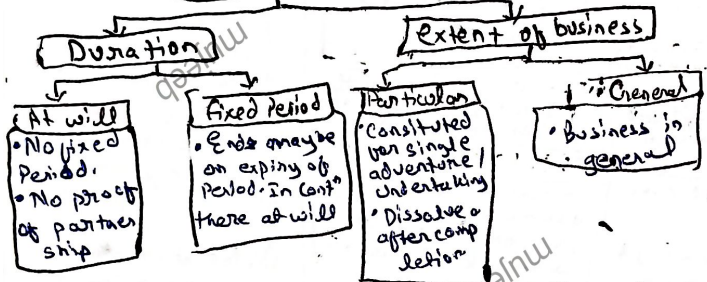 Duration
Extent of business
At will
• No fixed
Period.
• No proof
of partner
ship
Fixed Period
• Ends maybe
on expiry of
Period. In Contn
there at will
Particular
• Consituted
for single
adventure /
undertaking
• Dissolve
after comp
letion
General
• Business in
general